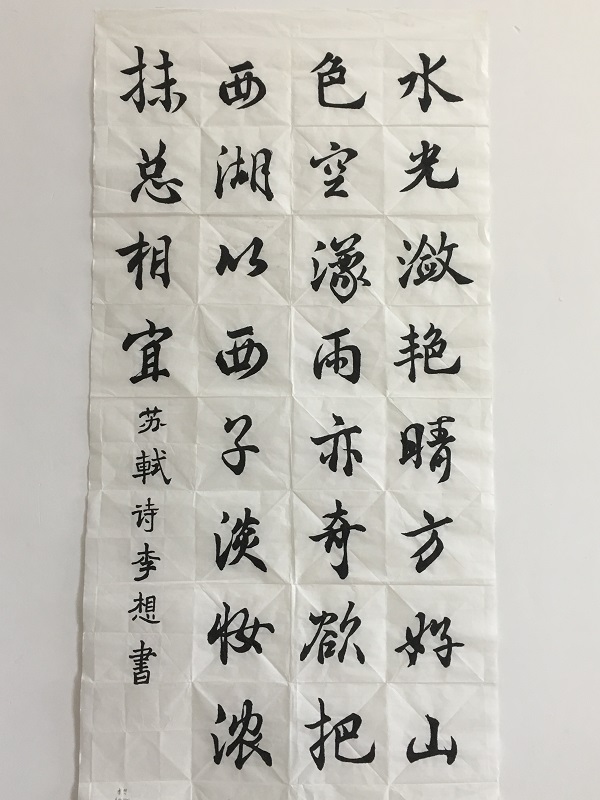 水光潋艳晴方好山
色空濛雨亦奇欲把
西湖以西子淡妆浓
抹总相宜
苏轼诗李想書